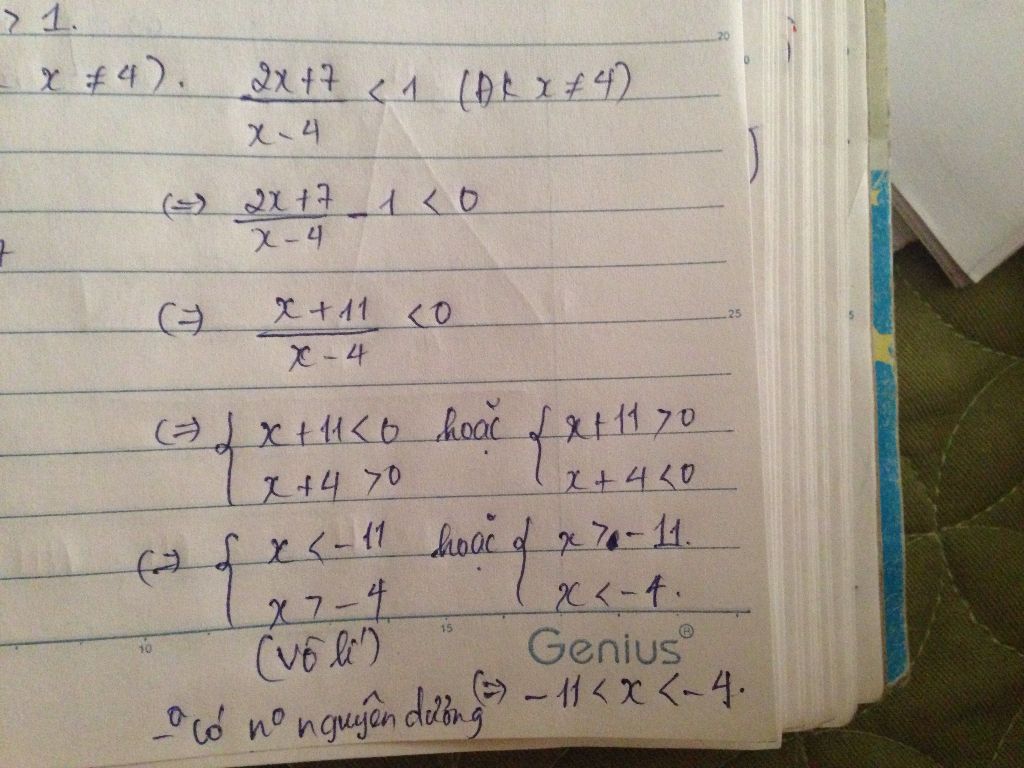 > 1.
x ≠ 4).
2x+7 / x-4 < 1 (ĐK x ≠ 4)
(=) 2x+7 / x-4 - 1 < 0
(=) x+11 / x-4 < 0
(=) { x+11 < 0 hoặc { x+11 > 0
x+4 > 0 x+4 < 0
(=) { x < -11 hoặc { x > -11.
x > -4 x < -4.
(vô lí)
Genius®
(=) -11 < x < -4.
có nº nguyên dương
20
25
5
10
15